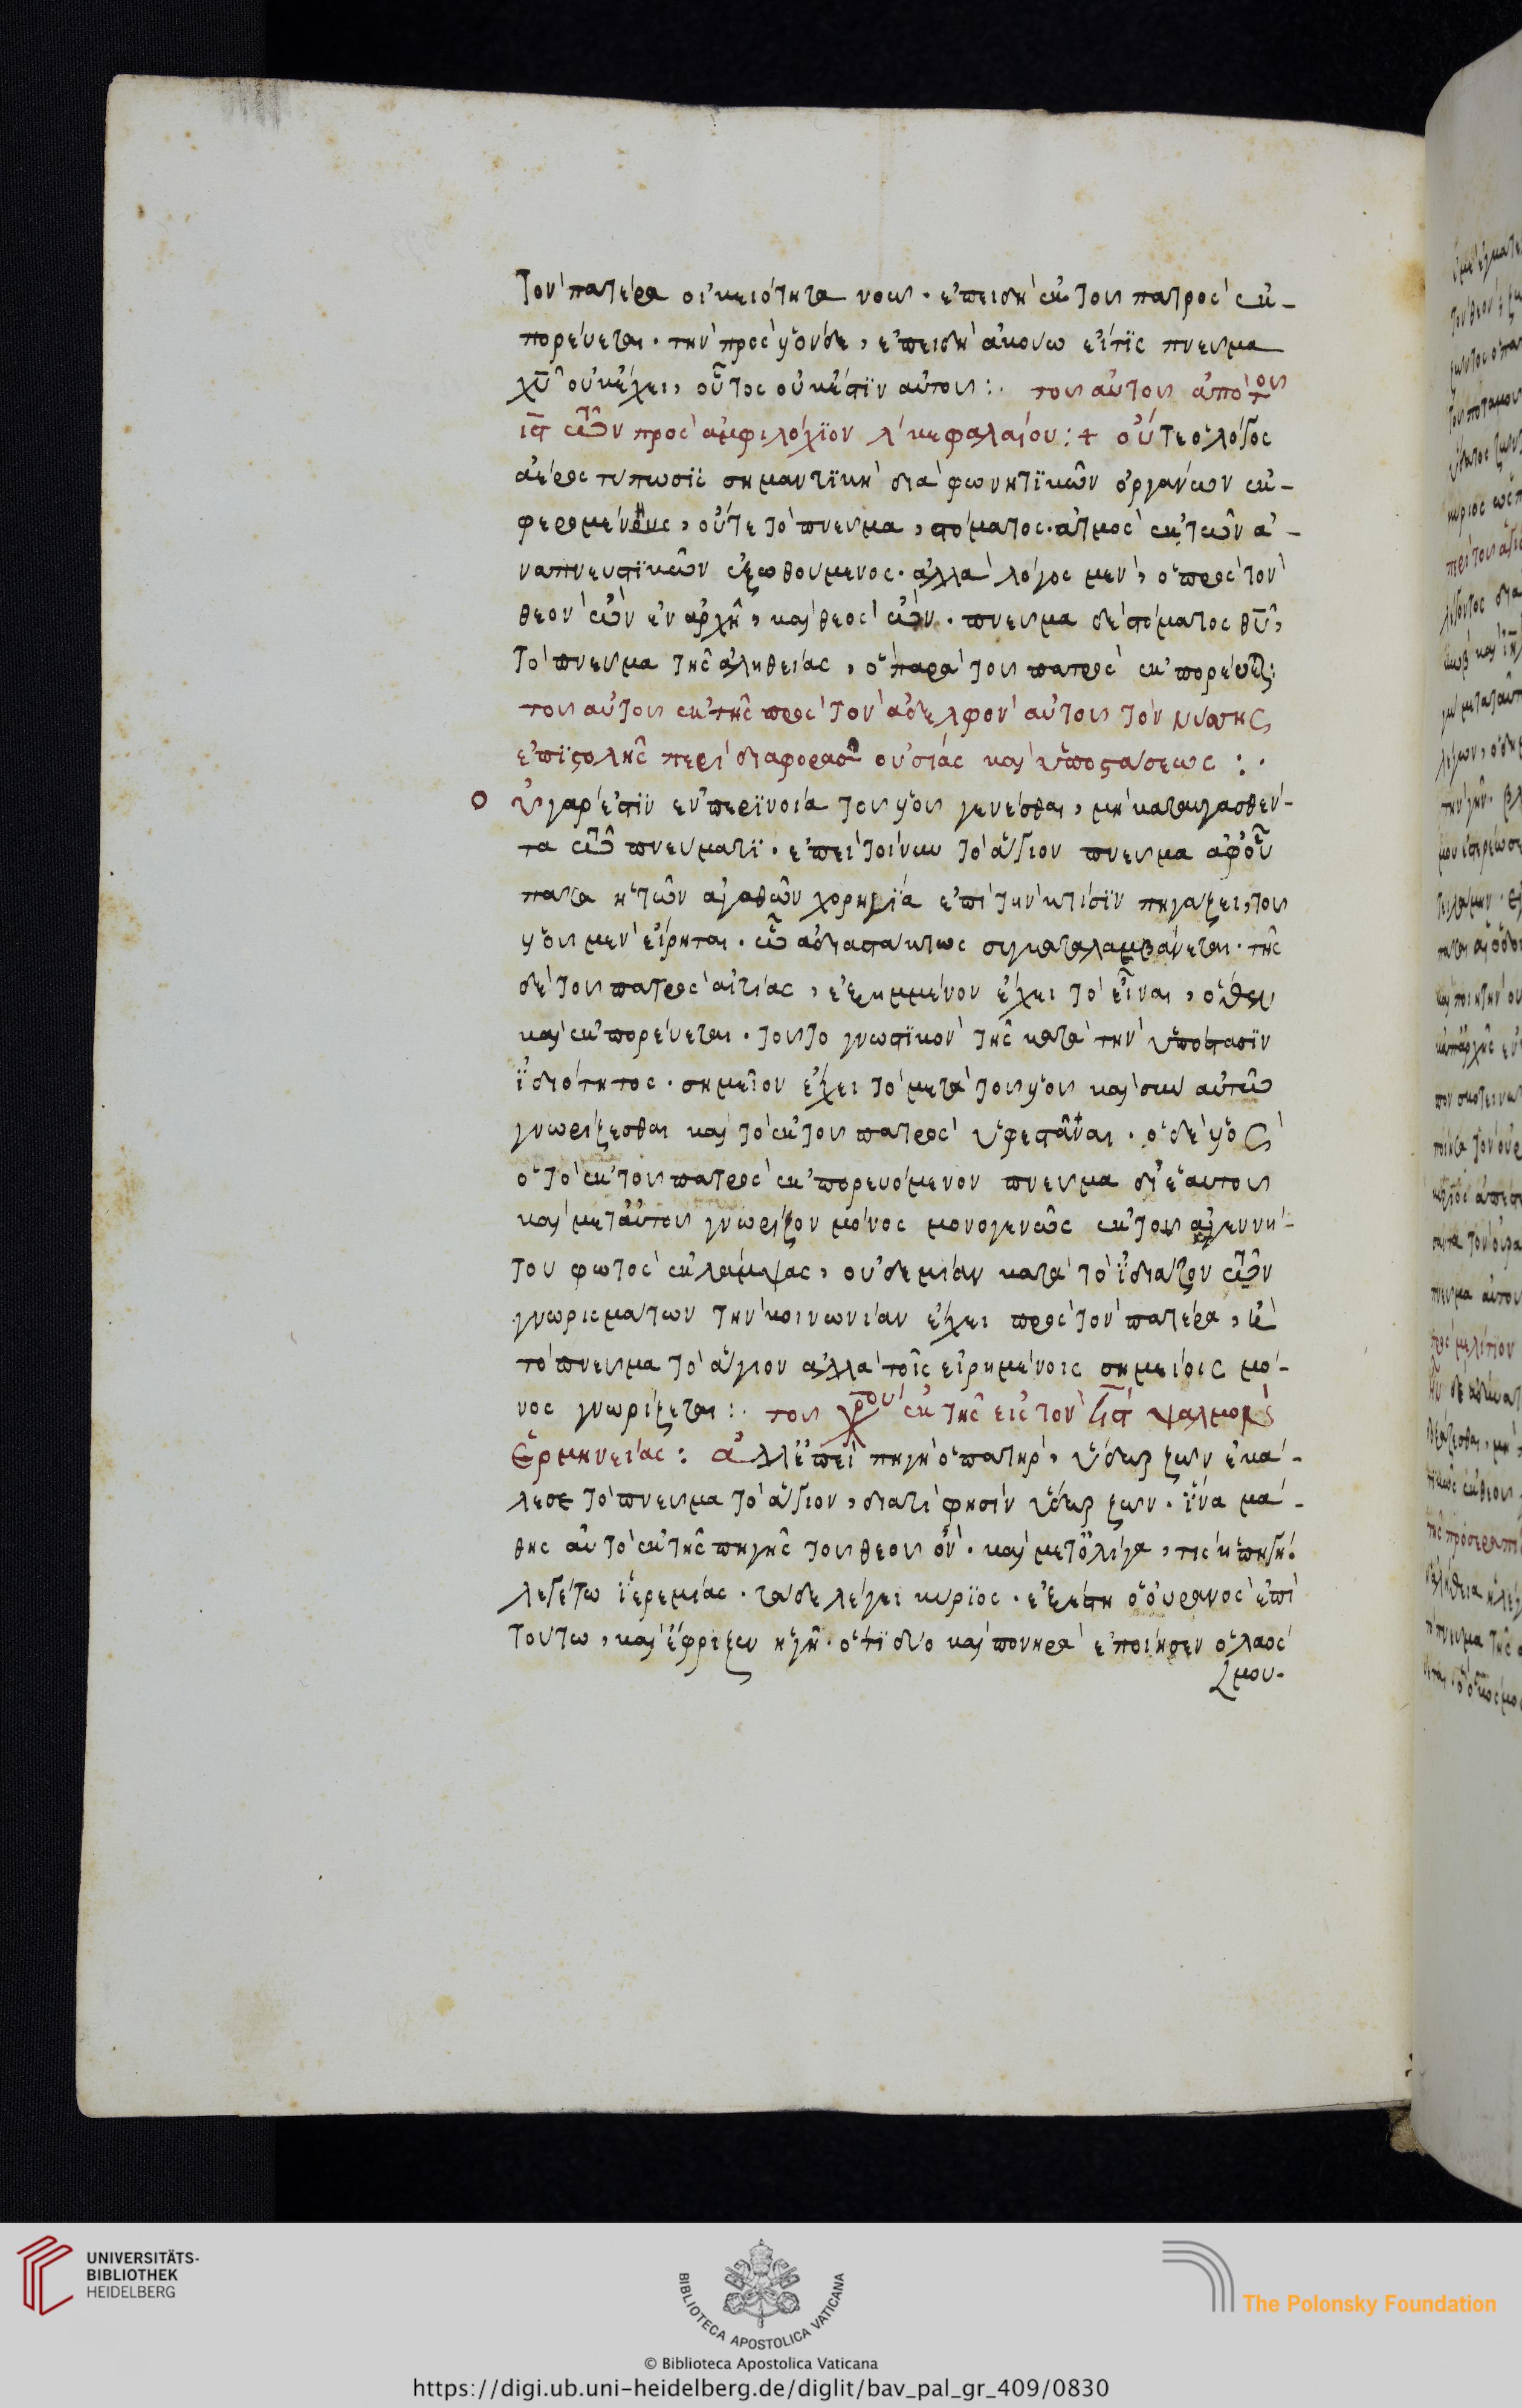 Τὸν πατέρα οἰκειότητα νοῶ· ἐπειδὴ ἐκ τοῦ πατρὸς ἐκ-
πορεύεται· τὴν πρὸς υὸν δὲ, ἐπειδὴ ἀκούω εἴτις πνεῦμα
χῦ οὐκ ἔχει, οὗτος οὐκ ἔστιν αὐτοῦ :· τοῦ αὐτοῦ ἀπὸ τοῦ
τῶν πρὸς ἀμφιλόχιον λ´ κεφαλαίου :+ οὔτε ὁ λόγος
ἀέρος τύπωσις σημαντικὴ διὰ φωνητικῶν ὀργάνων ἐκ-
φερομένης, οὔτε τὸ πνεῦμα, στόματος ἀτμὸς ἐκ τῶν ἀ-
ναπνευστικῶν ἐξωθούμενος· ἀλλὰ λόγος μὲν, ὁ πρὸς τὸν
θεὸν ὢν ἐν ἀρχῆ, καὶ θεὸς ὢν· πνεῦμα δὲ στόματος θῦ,
τὸ πνεῦμα τῆς ἀληθείας, ὃ παρὰ τοῦ πατρὸς ἐκπορεύεται:
τοῦ αὐτοῦ ἐκ τῆς πρὸς τὸν ἀδελφὸν αὐτοῦ τὸν νύσης
ἐπιστολῆς περὶ διαφορᾶς οὐσίας καὶ ὑποστάσεως :·
Οὐ γάρ ἐστιν ἐν περινοία τοῦ υοῦ γενέσθαι, μὴ καταυγασθέν-
τα τῶ πνεύματι· ἐπεὶ τοίνυν τὸ ἅγιον πνεῦμα ἀφ' οὗ
πᾶσα ἡ τῶν ἀγαθῶν χορηγία ἐπὶ τὴν κτίσιν πηγάζει, τοῦ
υοῦ μὲν εἴρηται· ὧ ἀδιαστάκτως συγκαταλαμβάνεται· τῆς
δὲ τοῦ πατρὸς αἰτίας, ἐξημμένον ἔχει τὸ εἶναι, ὅθεν
καὶ ἐκπορεύεται· τοῦτο γνωστικὸν τῆς κατὰ τὴν ὑπόστασιν
ἰδιότητος· σημεῖον ἔχει τὸ μετὰ τοῦ υοῦ καὶ σὺν αὐτῶ
γνωρίζεσθαι καὶ τὸ ἐκ τοῦ πατρὸς ὑφεστάναι· ὁ δὲ υὸς
ὁ τὸ ἐκ τοῦ πατρὸς ἐκπορευόμενον πνεῦμα δι' ἑαυτοῦ
καὶ μετ' αὐτοῦ γνωρίζον μόνος μονογενῶς ἐκ τοῦ ἀγεννή-
του φωτὸς ἐκλάμψας, οὐδεμίαν κατὰ τὸ ἰδιάζον τῶν
γνωρισμάτων τὴν κοινωνίαν ἔχει πρὸς τὸν πατέρα, ἢ
τὸ πνεῦμα τὸ ἅγιον ἀλλὰ τοῖς εἰρημένοις σημείοις μό-
νος γνωρίζεται :· τοῦ ἐκ τῆς εἰς τὸν ψαλμὸν
Ἑρμηνείας : ἀλλ' ἐπεὶ πηγὴ ὁ πατὴρ, ὕδωρ ζῶν ἐκά-
λεσε τὸ πνεῦμα τὸ ἅγιον, διατί φησὶν ὕδωρ ζῶν· ἵνα μά-
θης αὐτὸ ἐκ τῆς πηγῆς τοῦ θεοῦ ὂν· καὶ μετ' ὀλίγα, τίς ἡ πηγή·
λεγέτω ἱερεμίας· τάδε λέγει κύριος· ἐξέστη ὁ οὐρανὸς ἐπὶ
τούτω, καὶ ἔφριξεν ἡ γῆ· ὅτι δύο καὶ πονηρὰ ἐποίησεν ὁ λαός
μου·
UNIVERSITÄTS-
BIBLIOTHEK
HEIDELBERG
BIBLIOTECA APOSTOLICA VATICANA
The Polonsky Foundation
© Biblioteca Apostolica Vaticana
https://digi.ub.uni-heidelberg.de/diglit/bav_pal_gr_409/0830